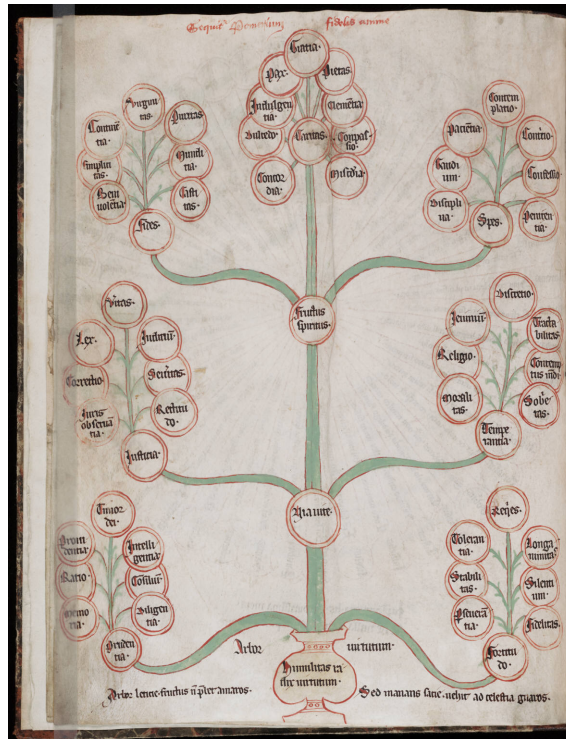 fidelis anime
Gratia.
Pax.
Pietas.
Indulgen
tia.
Clemẽtia.
Dulcedo.
Caritas.
Compas
sio.
Concor
dia.
Misc̃dia.
Virgini
tas.
Continẽ
tia.
Puritas
Simplici
tas.
Mundi
tia.
Beni
volentia.
Casti
tas.
Fides.
Contem
platio.
Paciẽtia.
Contricio.
Gaudi
um.
Confessio
Discipli
na.
Peniten
tia.
Spes.
Fructus
spiritus.
Veritas.
Lex.
Judiciũ.
Correctio.
Sev̾itas.
Juris
observã
tia.
Rectitu
do.
Justicia.
Discretio.
Jeiuniũ.
Tracta
bilitas
Religio.
Contemp
tus mũdi
Morali
tas.
Sob̾e
tas.
Tempe
rantia.
Timor
dei.
Provi
dentia.
Intelli
gentia.
Ratio.
Cõsiliũ.
Memo
ria.
Diligen
tia.
Pruden
tia.
Req̾es.
Toleran
tia.
Longa
nimitas
Stabili
tas.
Silenti
um.
P̾severã
tia.
Fidelitas.
Fortitu
do.
Arbor
virtutum.
Humilitas ra
dix virtutum.
Arbor
fructus
amaros.
Sed
ad celestia gnaros.